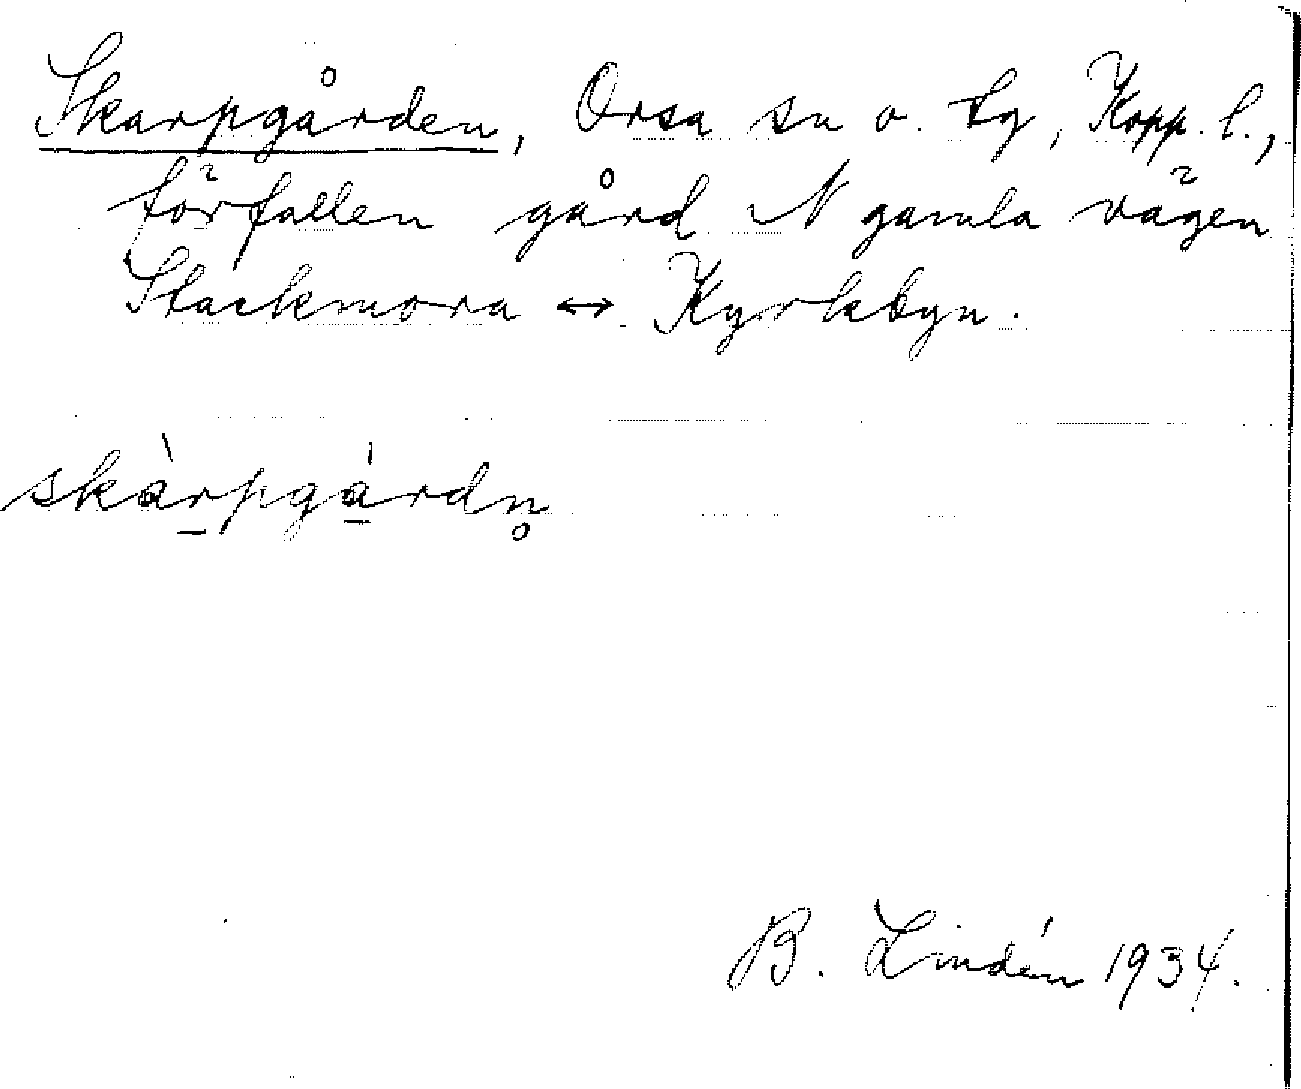 Skarpgården, Orsa sn o. tg, Kopp. l.,
förfallen gård N gamla vägen
Stackmora ↔ Kyrkbyn.
skàr̠pgá̠rdn̥
B. Lindén 1934.